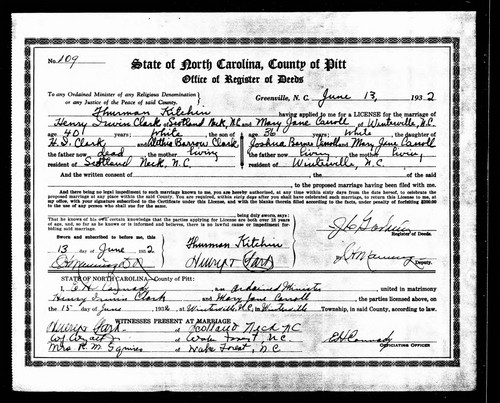 No. 109
State of North Carolina, County of Pitt
Office of Register of Deeds
To any Ordained Minister of any Religious Denomination
or any Justice of the Peace of said County.
Greenville, N. C. June 13, 1932
Thurman Kitchin having applied to me for a LICENSE for the marriage of
Henry Irwin Clark of Scotland Neck, N.C. and Mary Jane Carroll of Winterville, N.C.
age 40 years; White, the son of age 36 years; White, the daughter of
H. I. Clark and Barrow Clark Joshua Barnes Carroll and Mary Jane Carroll
the father now dead, the mother living the father now living, the mother living,
resident of Scotland Neck, N.C. resident of Winterville, N.C.
And the written consent of of the said
to the proposed marriage having been filed with me.
And there being no legal impediment to such marriage known to me, you are hereby authorized, at any time within sixty days from the date hereof, to celebrate the
proposed marriage at any place within the said County. You are required, within sixty days after you shall have celebrated such marriage, to return this License to me, at
my office, with your signature subscribed to the Certificate under this License, and with the blanks therein filled according to the facts, under penalty of forfeiting $200.00
to the use of any person who shall sue for the same.
being duly sworn, says:
That he knows of his own certain knowledge that the parties applying for License are both over 18 years
of age, and, so far as he knows or is informed and believes, there is no lawful cause or impediment for-
bidding said marriage.
Register of Deeds.
Sworn and subscribed to before me, this
13 day of June 1932 Thurman Kitchin
Deputy.
STATE OF NORTH CAROLINA County of Pitt:
I, E H Conrady an ordained Minister united in matrimony
Henry Irwin Clark and Mary Jane Carroll, the parties licensed above, on
the 15 day of June, 1932 at Winterville, N.C. in Winterville Township, in said County, according to law.
WITNESSES PRESENT AT MARRIAGE
of Scotland Neck NC
of Wake Forest, N.C.
Mrs R. M. Squires of Wake Forest, N.C.
OFFICIATING OFFICER